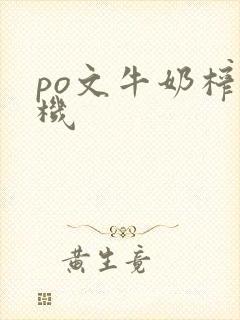 po文牛奶榨
機
黄生竟